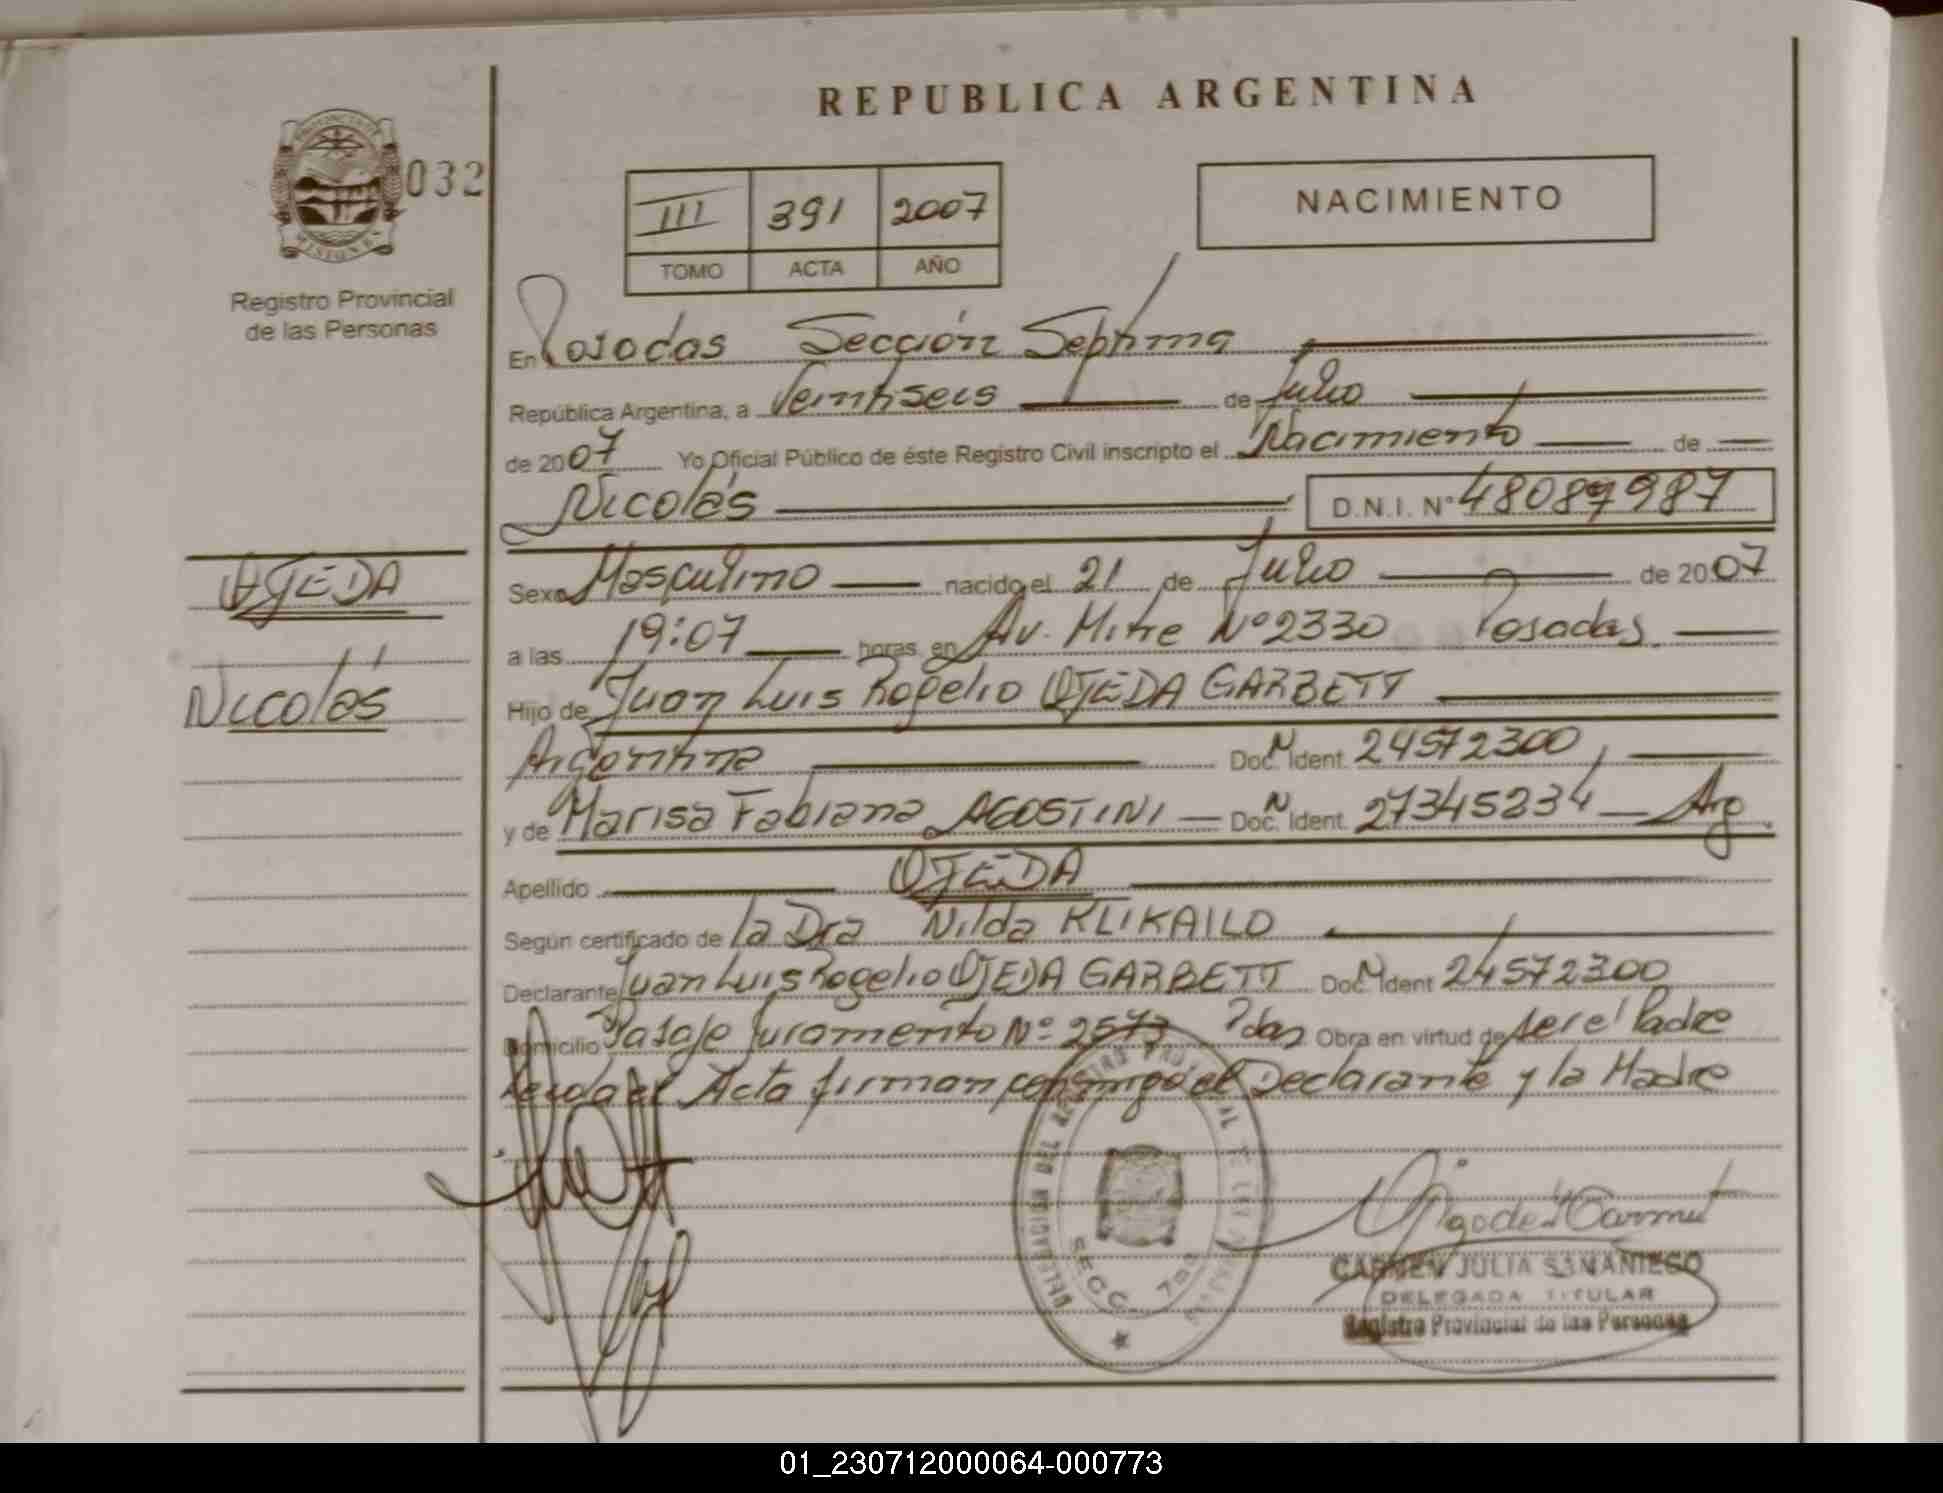 REPUBLICA ARGENTINA
PROVINCIA DE
MISIONES
032
Registro Provincial
de las Personas
III 391 2007
TOMO ACTA AÑO
NACIMIENTO
En Posadas Sección Septima
República Argentina, a Veintiseis de Julio
de 2007 Yo Oficial Público de éste Registro Civil inscripto el Nacimiento de
Nicolás D.N.I. N° 48087987
OJEDA
Nicolás
Sexo Masculino nacido el 21 de Julio de 2007
a las 19:07 horas en Av. Mitre Nº 2330 Posadas
Hijo de Juan Luis Rogelio OJEDA GARBETT
Argentina Doc. N Ident. 24572300
y de Marisa Fabiana AGOSTINI Doc. N Ident. 27345234 Arg
Apellido OJEDA
Según certificado de la Dra Nilda KLIKAILO
Declarante Juan Luis Rogelio OJEDA GARBETT Doc. N Ident 24572300
Domicilio Pasaje Juramento Nº 2577 Pdas Obra en virtud de ser el Padre
Leida el Acta firman conmigo el Declarante y la Madre
DELEGACION DEL REGISTRO PROVINCIAL DE LAS
SECC. 7ma
CARMEN JULIA SAMANIEGO
DELEGADA TITULAR
Registro Provincial de las Personas
01_230712000064-000773